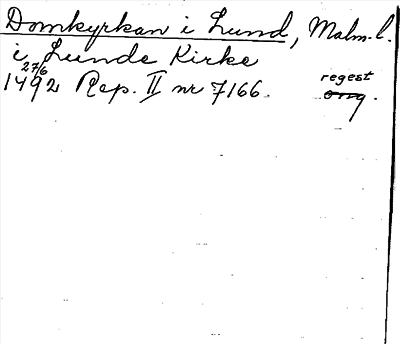 Domkyrkan i Lund, Malm. l.
i Lunde Kirke
1492 27/6 Rep. II nr 7166. regest
orig.